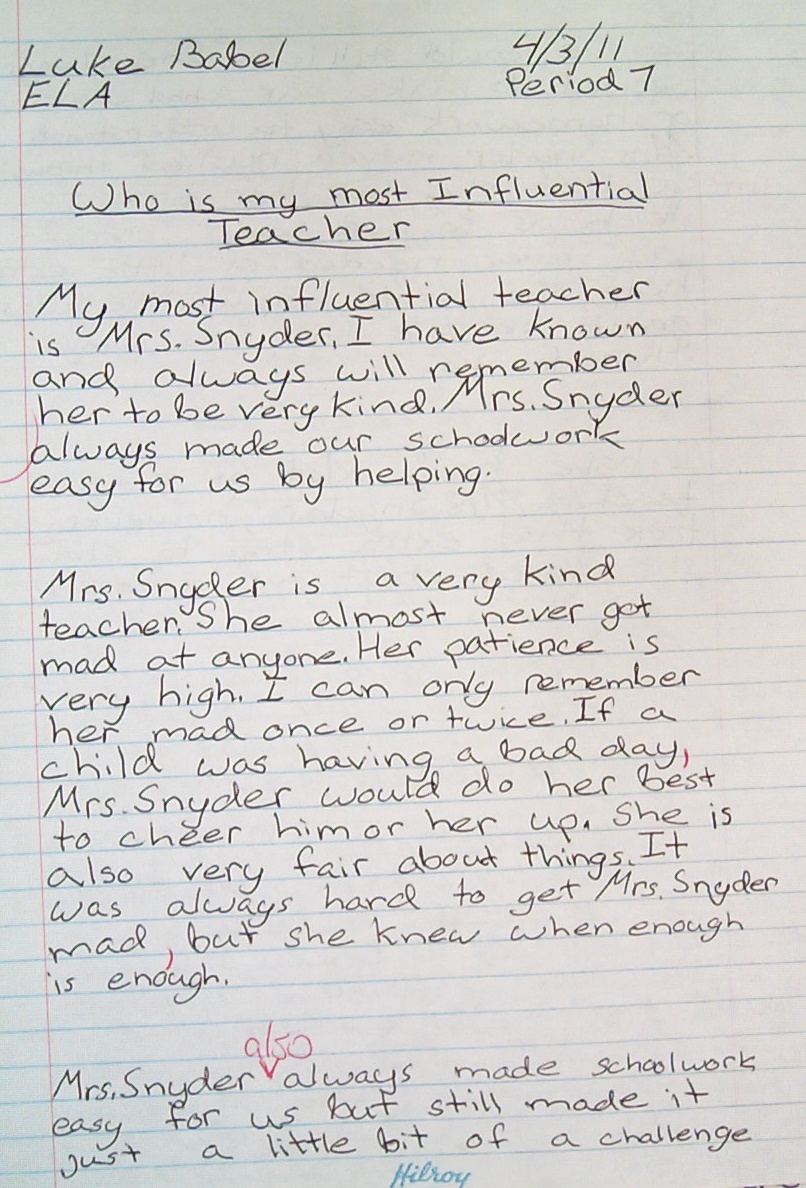 Luke Babel 4/3/11
ELA Period 7
Who is my most Influential
Teacher
My most influential teacher
is Mrs. Snyder. I have known
and always will remember
her to be very kind. Mrs. Snyder
always made our schoolwork
easy for us by helping.
Mrs. Snyder is a very kind
teacher. She almost never got
mad at anyone. Her patience is
very high. I can only remember
her mad once or twice. If a
child was having a bad day,
Mrs. Snyder would do her best
to cheer him or her up. She is
also very fair about things. It
was always hard to get Mrs. Snyder
mad, but she knew when enough
is enough.
also
Mrs. Snyder always made schoolwork
easy for us but still made it
just a little bit of a challenge
Hilroy